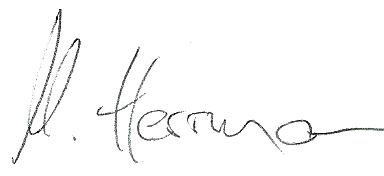 M. Herrmann